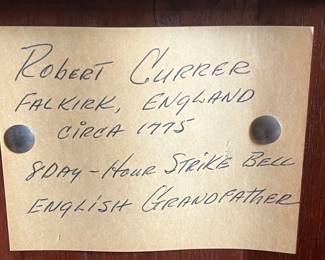 ROBERT CURRER
FALKIRK, ENGLAND
CIRCA 1775
8DAY - HOUR STRIKE BELL
ENGLISH GRANDFATHER